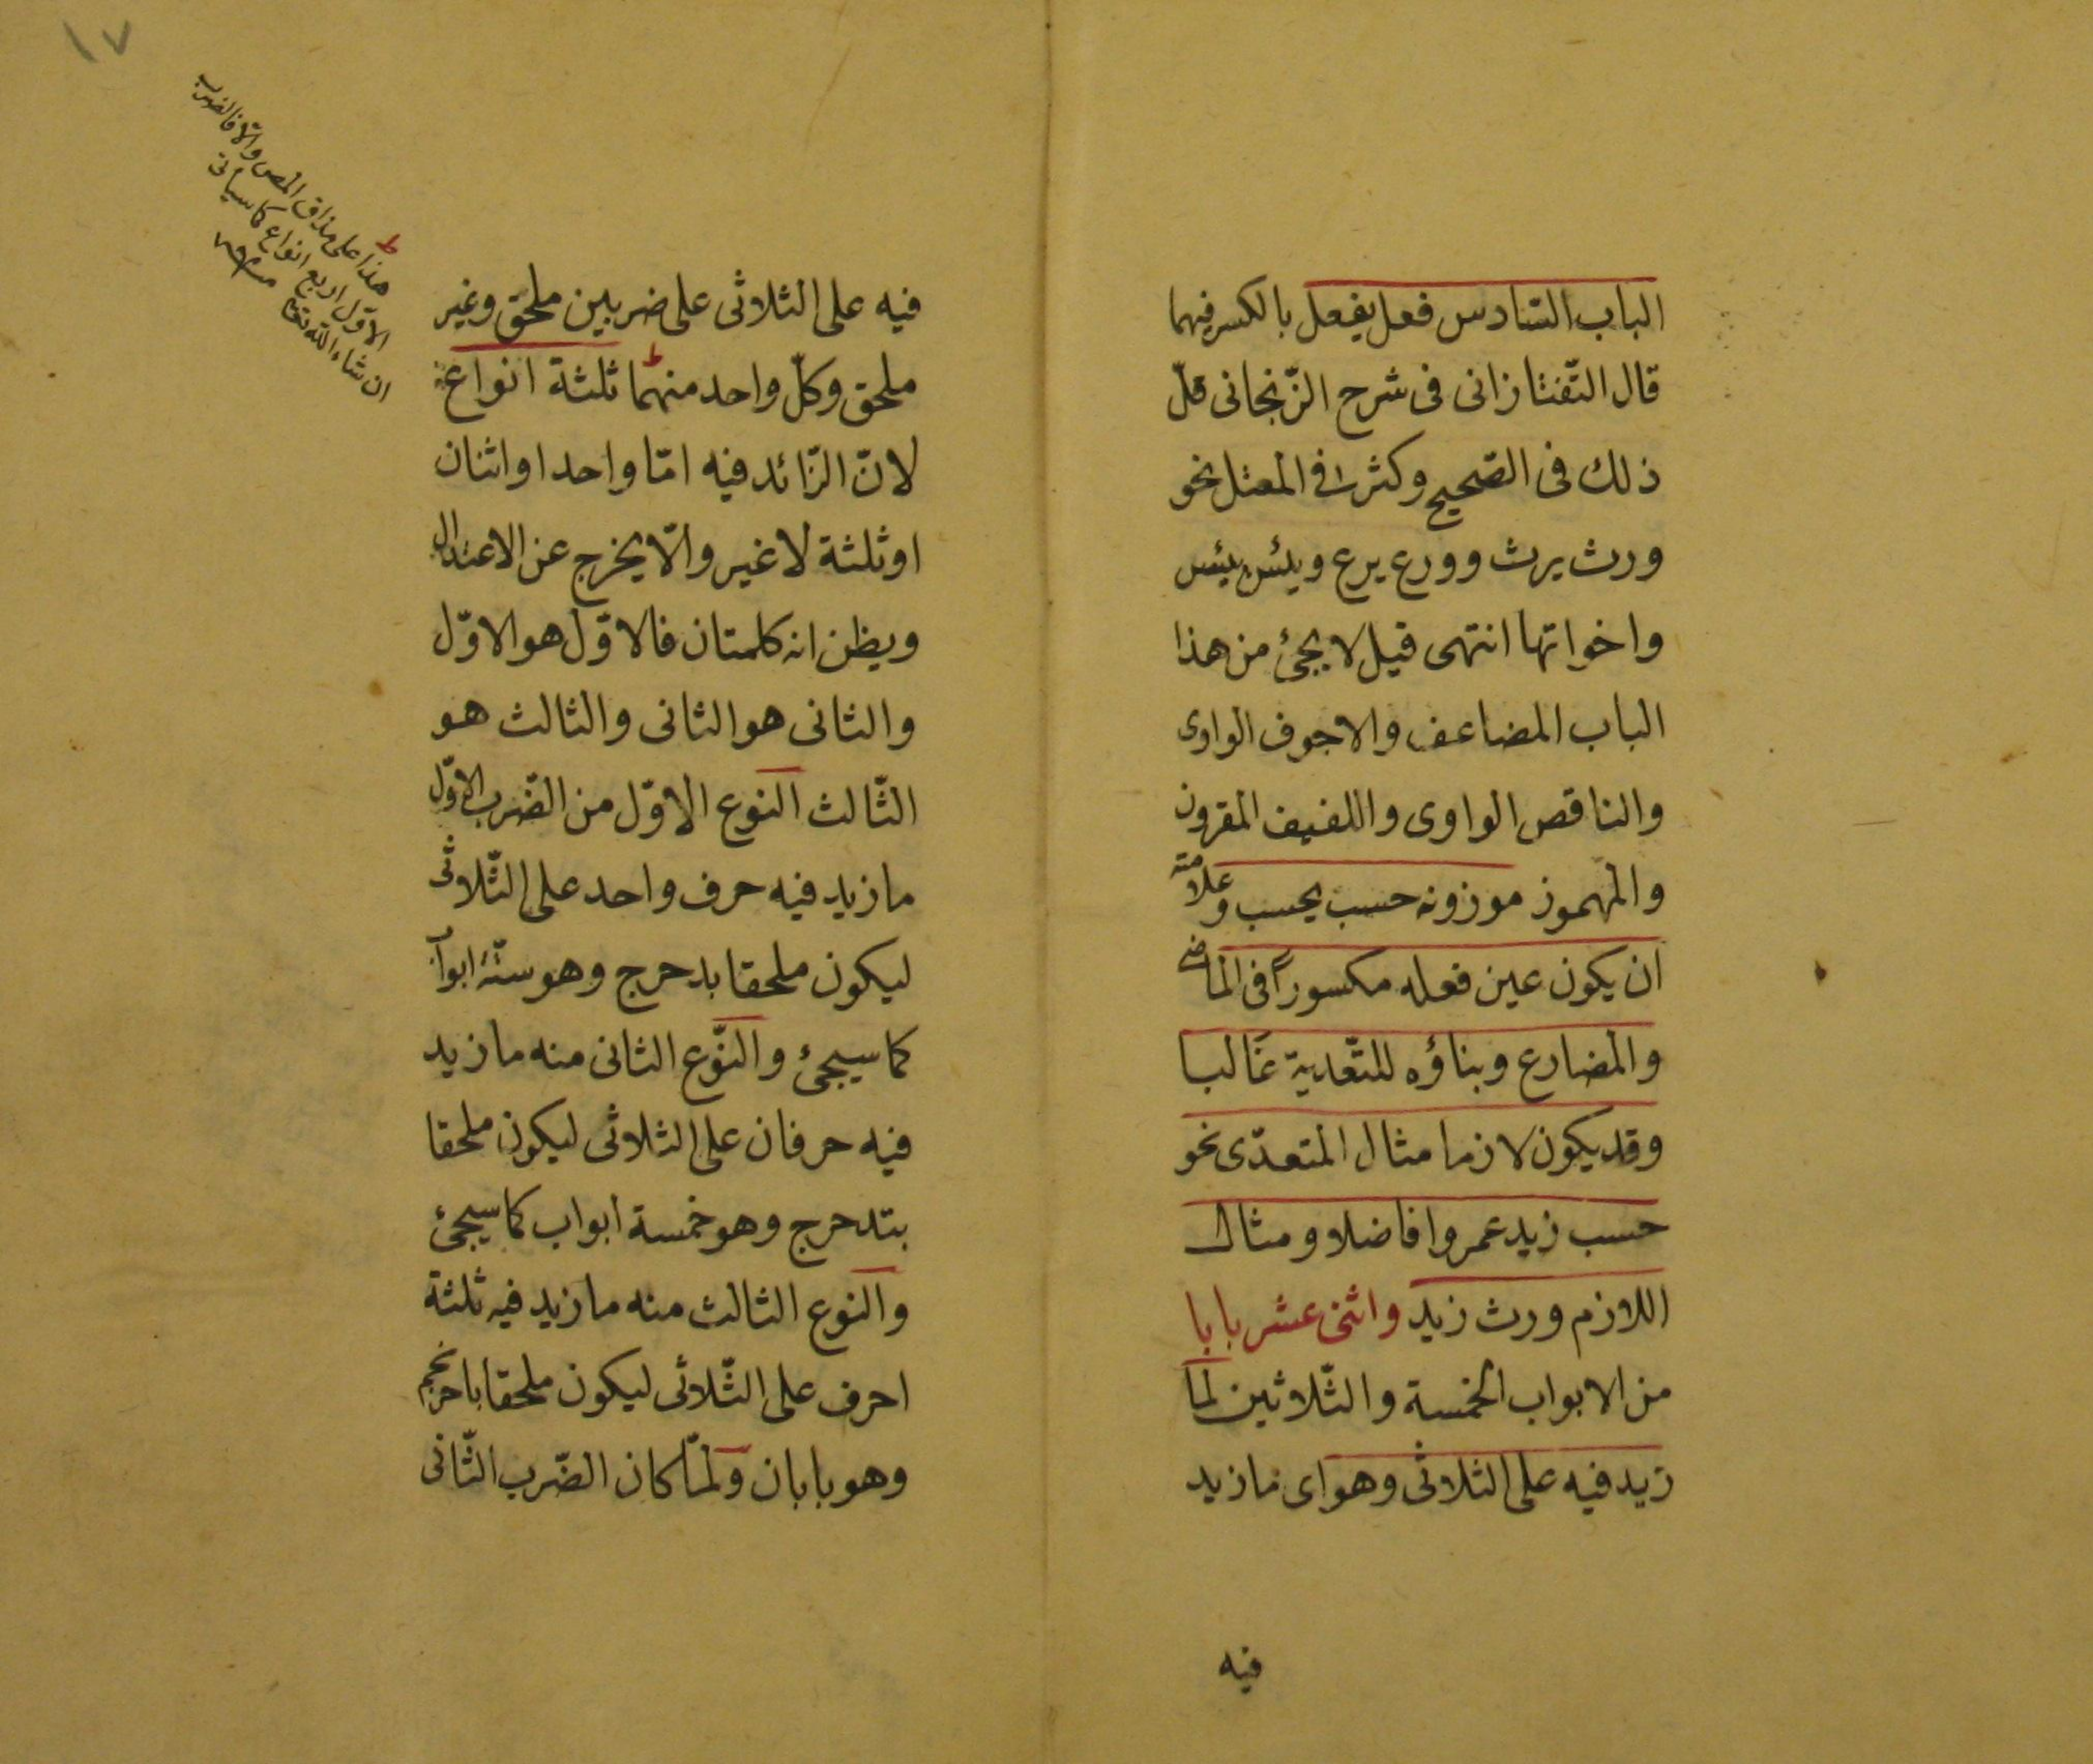 الباب السّادس فعل يفعل بالكسر فيهما
قال التّفتازانى فى شرح الزّنجانى قلّ
ذلك فى الصّحيح وكثر فى المعتل نحو
ورث يرث وورع يرع ويئس ييئس
واخواتها انتهى قيل لا يجئ من هذا
الباب المضاعف والاجوف الواوى
والناقص الواوى واللفيف المقرون
والمهموز موزونه حسب يحسب وعلامته
ان يكون عين فعله مكسوراً فى الماضى
والمضارع وبناؤه للتّعدية غالبا
وقد يكون لازما مثال المتعدّى نحو
حسب زيد عمروا فاضلا ومثال
اللازم ورث زيد واثنى عشر بابا
من الابواب الخمسة والثّلاثين لما
زيد فيه على الثلاثى وهو اى ما زيد
فيه
١٧
فيه على الثلاثى على ضربين ملحق وغير
ملحق وكلّ واحد منهما ثلثة انواع
لانّ الزّائد فيه امّا واحد او اثنان
او ثلثة لا غير والّا يخرج عن الاعتدال
ويظن انه كلمتان فالاوّل هو الاوّل
والثانى هو الثانى والثالث هو
الثّالث النوع الاوّل من الضّرب الاوّل
ما زيد فيه حرف واحد على الثّلاثى
ليكون ملحقا بدحرج وهو ستّة ابواب
كما سيجئ والنّوع الثانى منه ما زيد
فيه حرفان على الثلاثى ليكون ملحقا
بتدحرج وهو خمسة ابواب كما سيجئ
والنوع الثالث منه ما زيد فيه ثلثة
احرف على الثّلاثى ليكون ملحقا باحرنجم
وهو بابان ولمّا كان الضّرب الثّانى
هذا على مذاق المص والّا فالضرب
الاوّل اربع انواع كما سيأتى
ان شاء الله تعالى